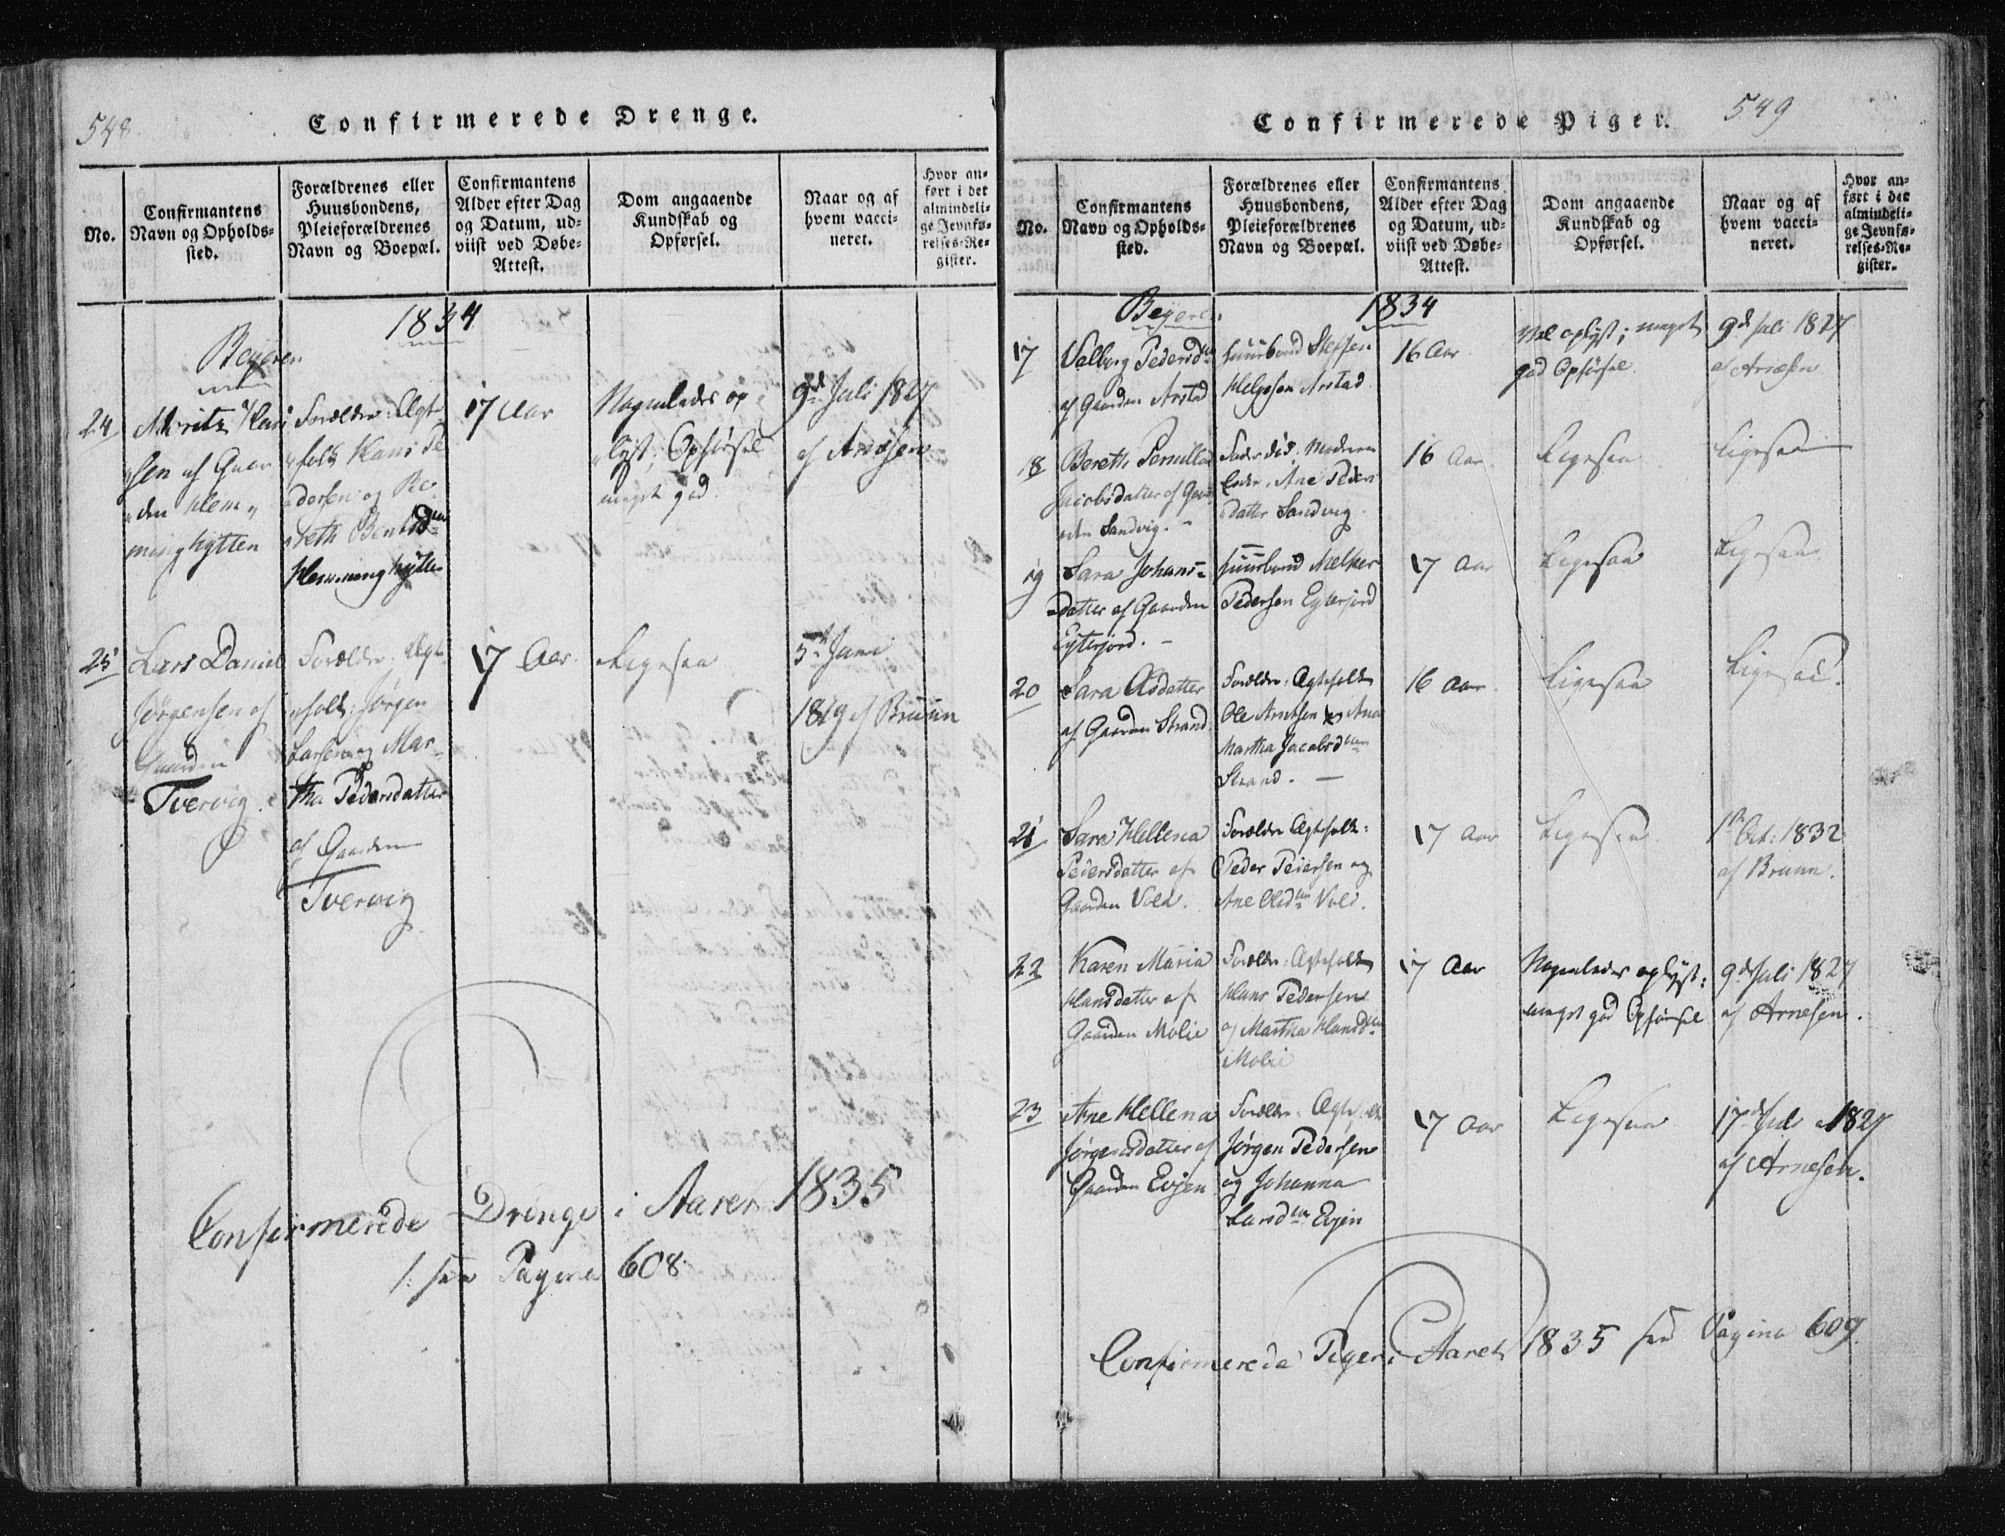 548.
Confirmerede Drenge.
No.
Confirmantens
Navn og Opholds-
sted.
Forældrenes eller
Huusbondens,
Pleieforældrenes
Navn og Boepæl.
Confirmantens
Alder efter Dag
og Datum, ud-
viist ved Døbe-
Attest.
Dom angaaende
Kundskab og
Opførsel.
Naar og af
hvem vacci-
neret.
Hvor an-
ført i det
almindeli-
ge Jevnfø-
relses-Re-
gister.
1834
Beyeren
24
Moritz Han
sen af Gaar
den Hem
minghytten
Forældre: Ægte
folk Hans Pe
dersen og Be
reth Bentsd
Hemminghytten
17 Aar
Nogenledes op
lyst; Opførsel
meget god.
9d Juli 1827
af Arnesen
25
Lars Daniel
Jørgensen af
Gaarden
Tvervig.
Forældre: Ægte
folk: Jørgen
Larsen og Mar
tha Pedersdatter
af Gaarden
Tvervig
17 Aar.
Ligesaa
5te Juni
1819 af Bruun
Confirmerede Drenge i Aaret 1835
see Pagina 608.
549
Confirmerede Piger.
No.
Confirmantens
Navn og Opholds-
sted.
Forældrenes eller
Huusbondens,
Pleieforældrenes
Navn og Boepæl.
Confirmantens
Alder efter Dag
og Datum, ud-
viist ved Døbe-
Attest.
Dom angaaende
Kundskab og
Opførsel.
Naar og af
hvem vacci-
neret.
Hvor an-
ført i det
almindeli-
ge Jevnfø-
relses-Re-
gister.
Beyeren
1834
17
Valborg Pedersd
af Gaarden Arstad
Huusbond Steffen
Helgesen Arstad
16 Aar
Vel oplyst; meget
god Opførsel.
9d Juli 1827
af Arnesen
18
Bereth Pernilla
Jacobsdatter af Gaar
den Sandvig.
Fader død; Moderen
lever, Ane Peders
datter Sandvig.
16 Aar.
Ligesaa
Ligesaa
19
Sara Johans-
datter af Gaarden
Eyterjord.
Huusbond Melker
Pedersen Eyterjord
17 Aar
Ligesaa
Ligesaa
20
Sara Olsdatter
af Gaarden Strand
Forældre: Ægtefolk
Ole Arntsen og Ane
Martha Jacobsd
Strand.
16 Aar.
Ligesaa
Ligesaa.
21
Sara Hellena
Pedersdatter af
Gaarden Vold.
Forældre Ægtefolk:
Peder Pedersen og
Ane Olsd Vold.
17 Aar
Ligesaa.
1ste Oct: 1832
af Bruun.
22
Karen Maria
Hansdatter af
Gaarden Molie
Forældre: Ægtefolk
Hans Pedersen
og Martha Hansd
Molie
17 Aar
Nogenledes oplyst:
meget god Opførsel
9d Juli 1827
af Arnesen.
23
Ane Hellena
Jørgensdatter af
Gaarden Evjen
Forældre: Ægtefolk
Jørgen Pedersen
og Johanna
Larsd Evjen
17 Aar
Ligesaa
17d Juli 1827
af Arnesen.
Confirmerede Piger i Aaret 1835 see Pagina 609.